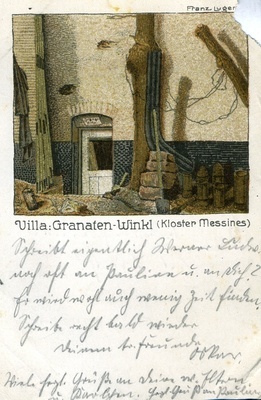 Franz Luger
Villa: Granaten-Winkl (Kloster Messines)
Schreibt eigentlich Werner
noch oft an Pauline u. an Dich?
Er wird wohl auch wenig Zeit finden.
Schreibe recht bald wieder
Deinem tr. Freunde
Oskar
Viele herzl. Grüße an deine w. Eltern
u. Herzl. Gruß an Pauline